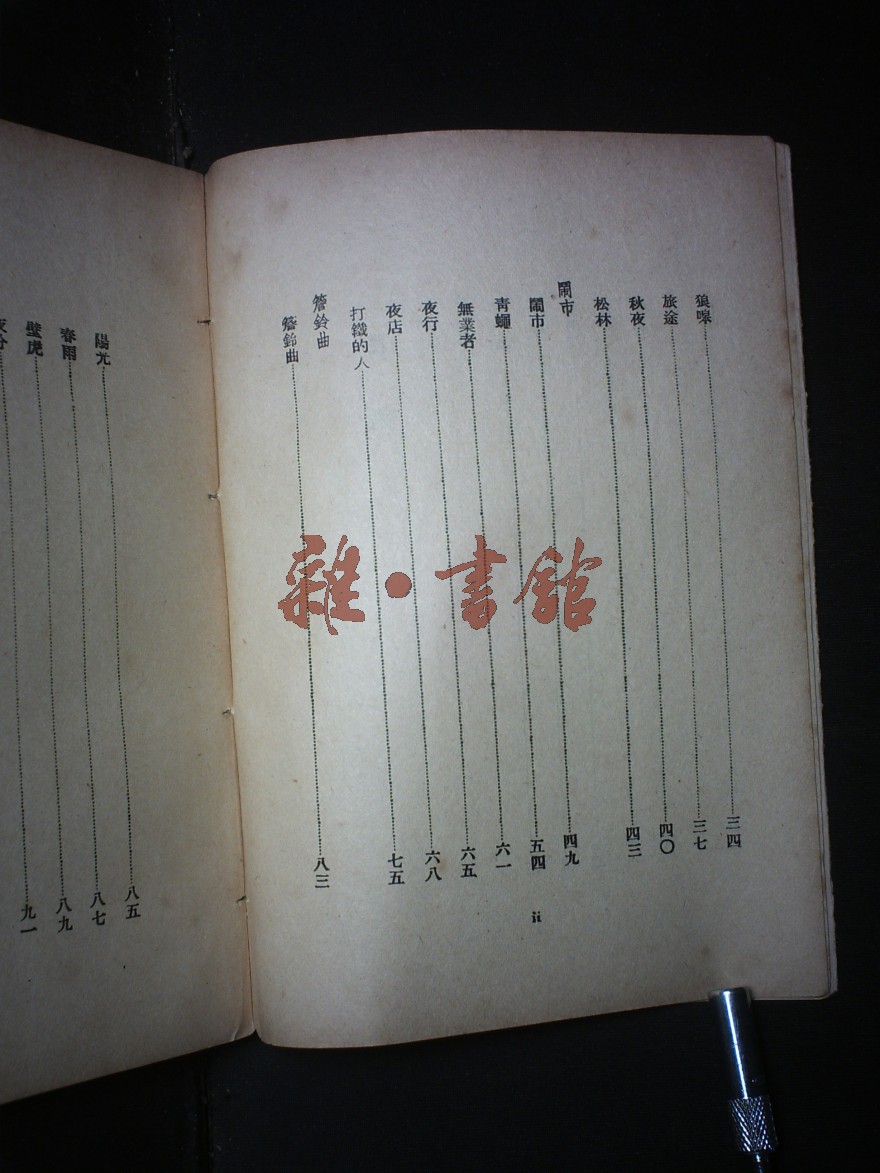 狼嗥……三四
旅途……三七
秋夜……四〇
松林……四三
鬧市
鬧市……四九
青蠅……五四
無業者……六一
夜行……六五
夜店……六八
打鐵的人……七五
簷鈴曲
簷鈴曲……八三
ii
陽光……八五
春雨……八七
壁虎……八九
……九一
雜·書館